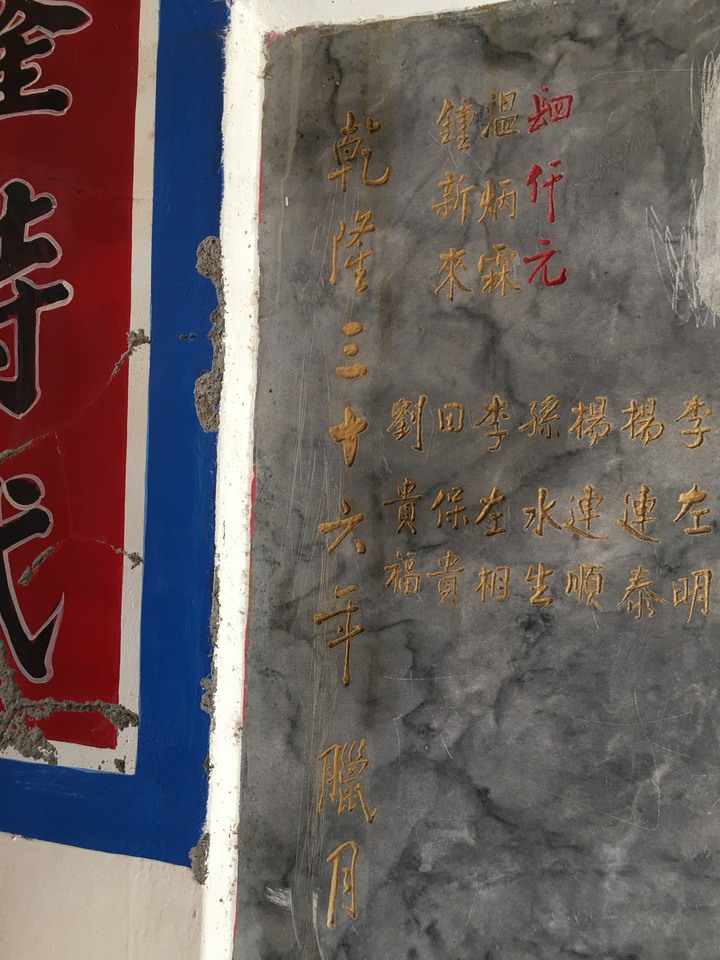 李左明
楊連泰
楊連順
孫水生
肆仟元
李左相
溫炳霖
田保貴
鍾新來
劉貴福
乾隆三十六年 臘月